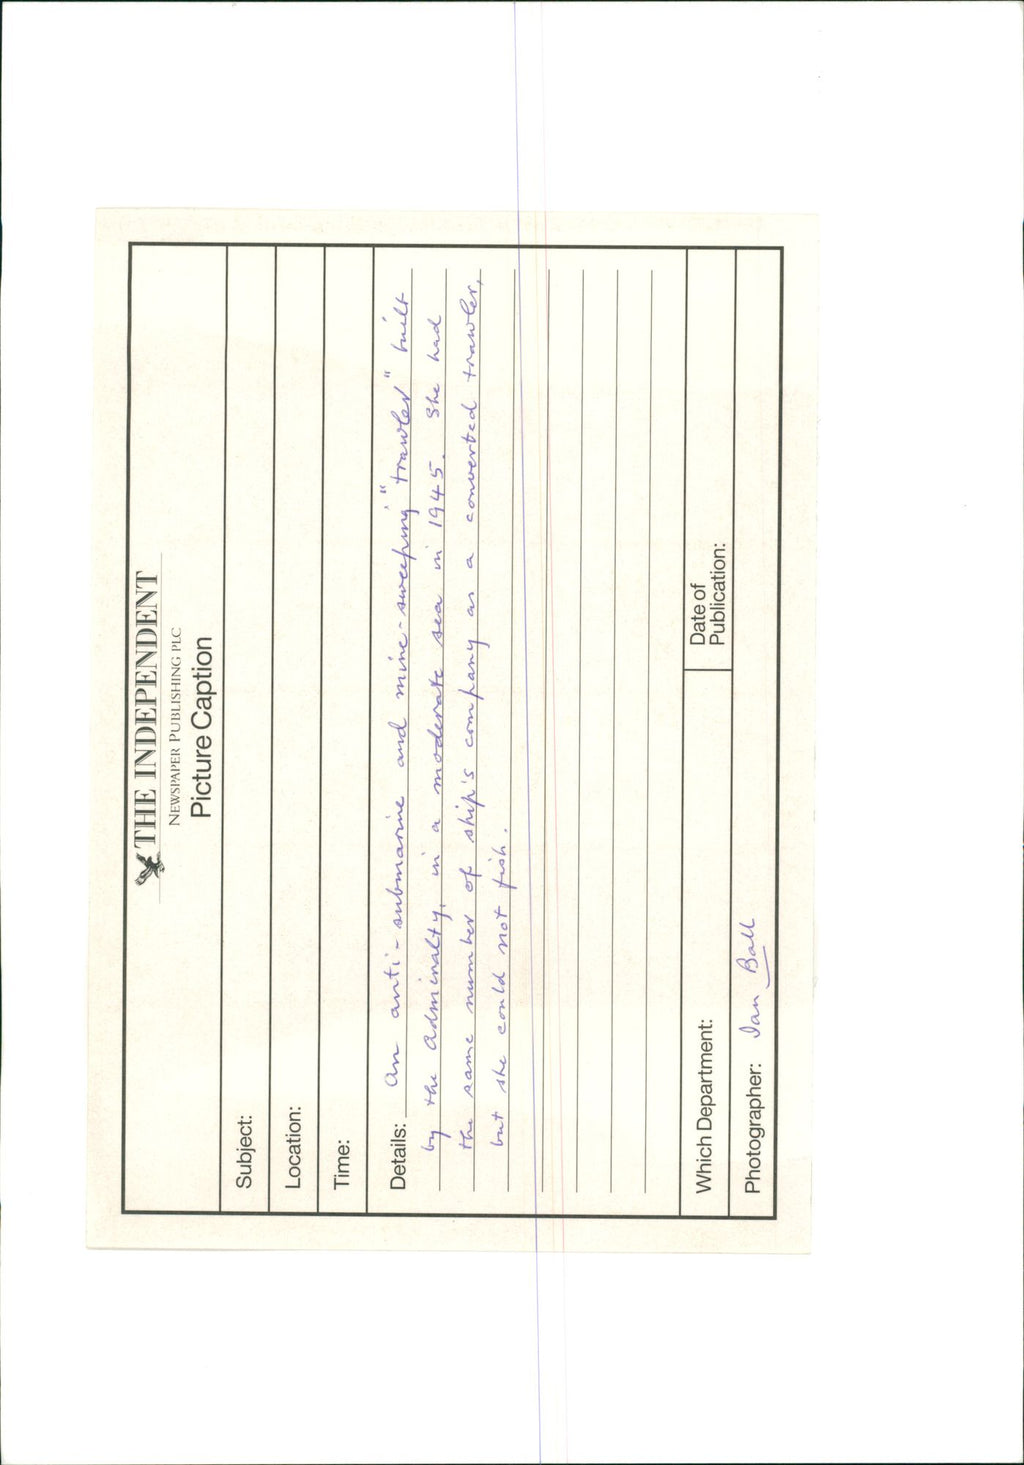 THE INDEPENDENT
NEWSPAPER PUBLISHING PLC
Picture Caption
Subject:
Location:
Time:
Details: An anti-submarine and mine-sweeping "trawler" built
by the Admiralty, in a moderate sea in 1945. She had
the same number of ship's company as a converted trawler,
but she could not fish.
Which Department:
Date of
Publication:
Photographer: Ian Ball